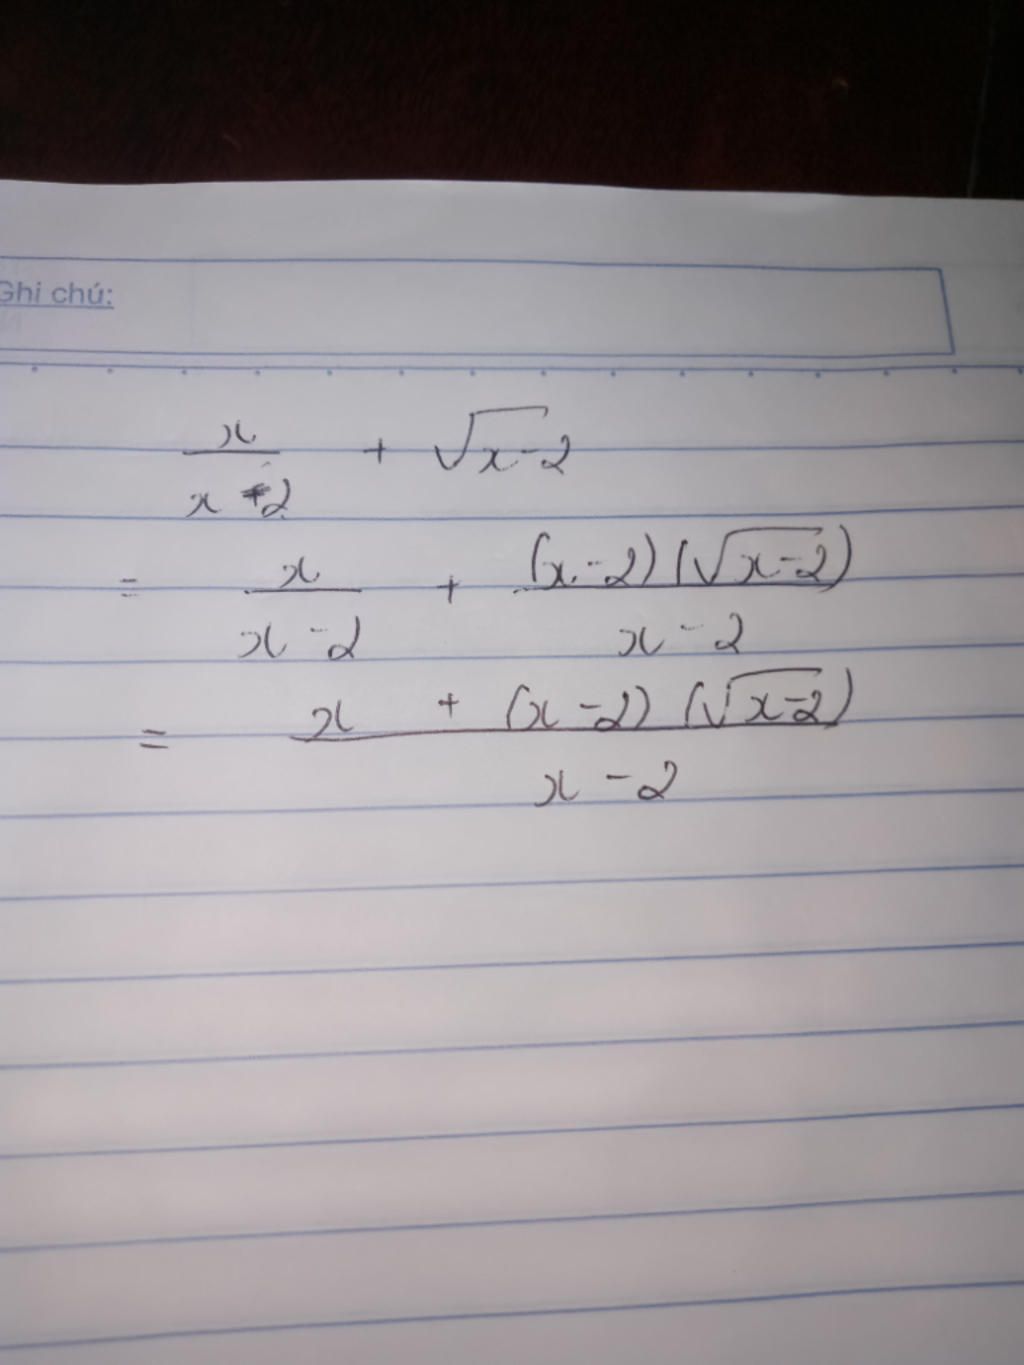 Ghi chú:
x/(x-2) + √(x-2)
= x/(x-2) + (x-2)(√(x-2))/(x-2)
= (x + (x-2)(√(x-2)))/(x-2)